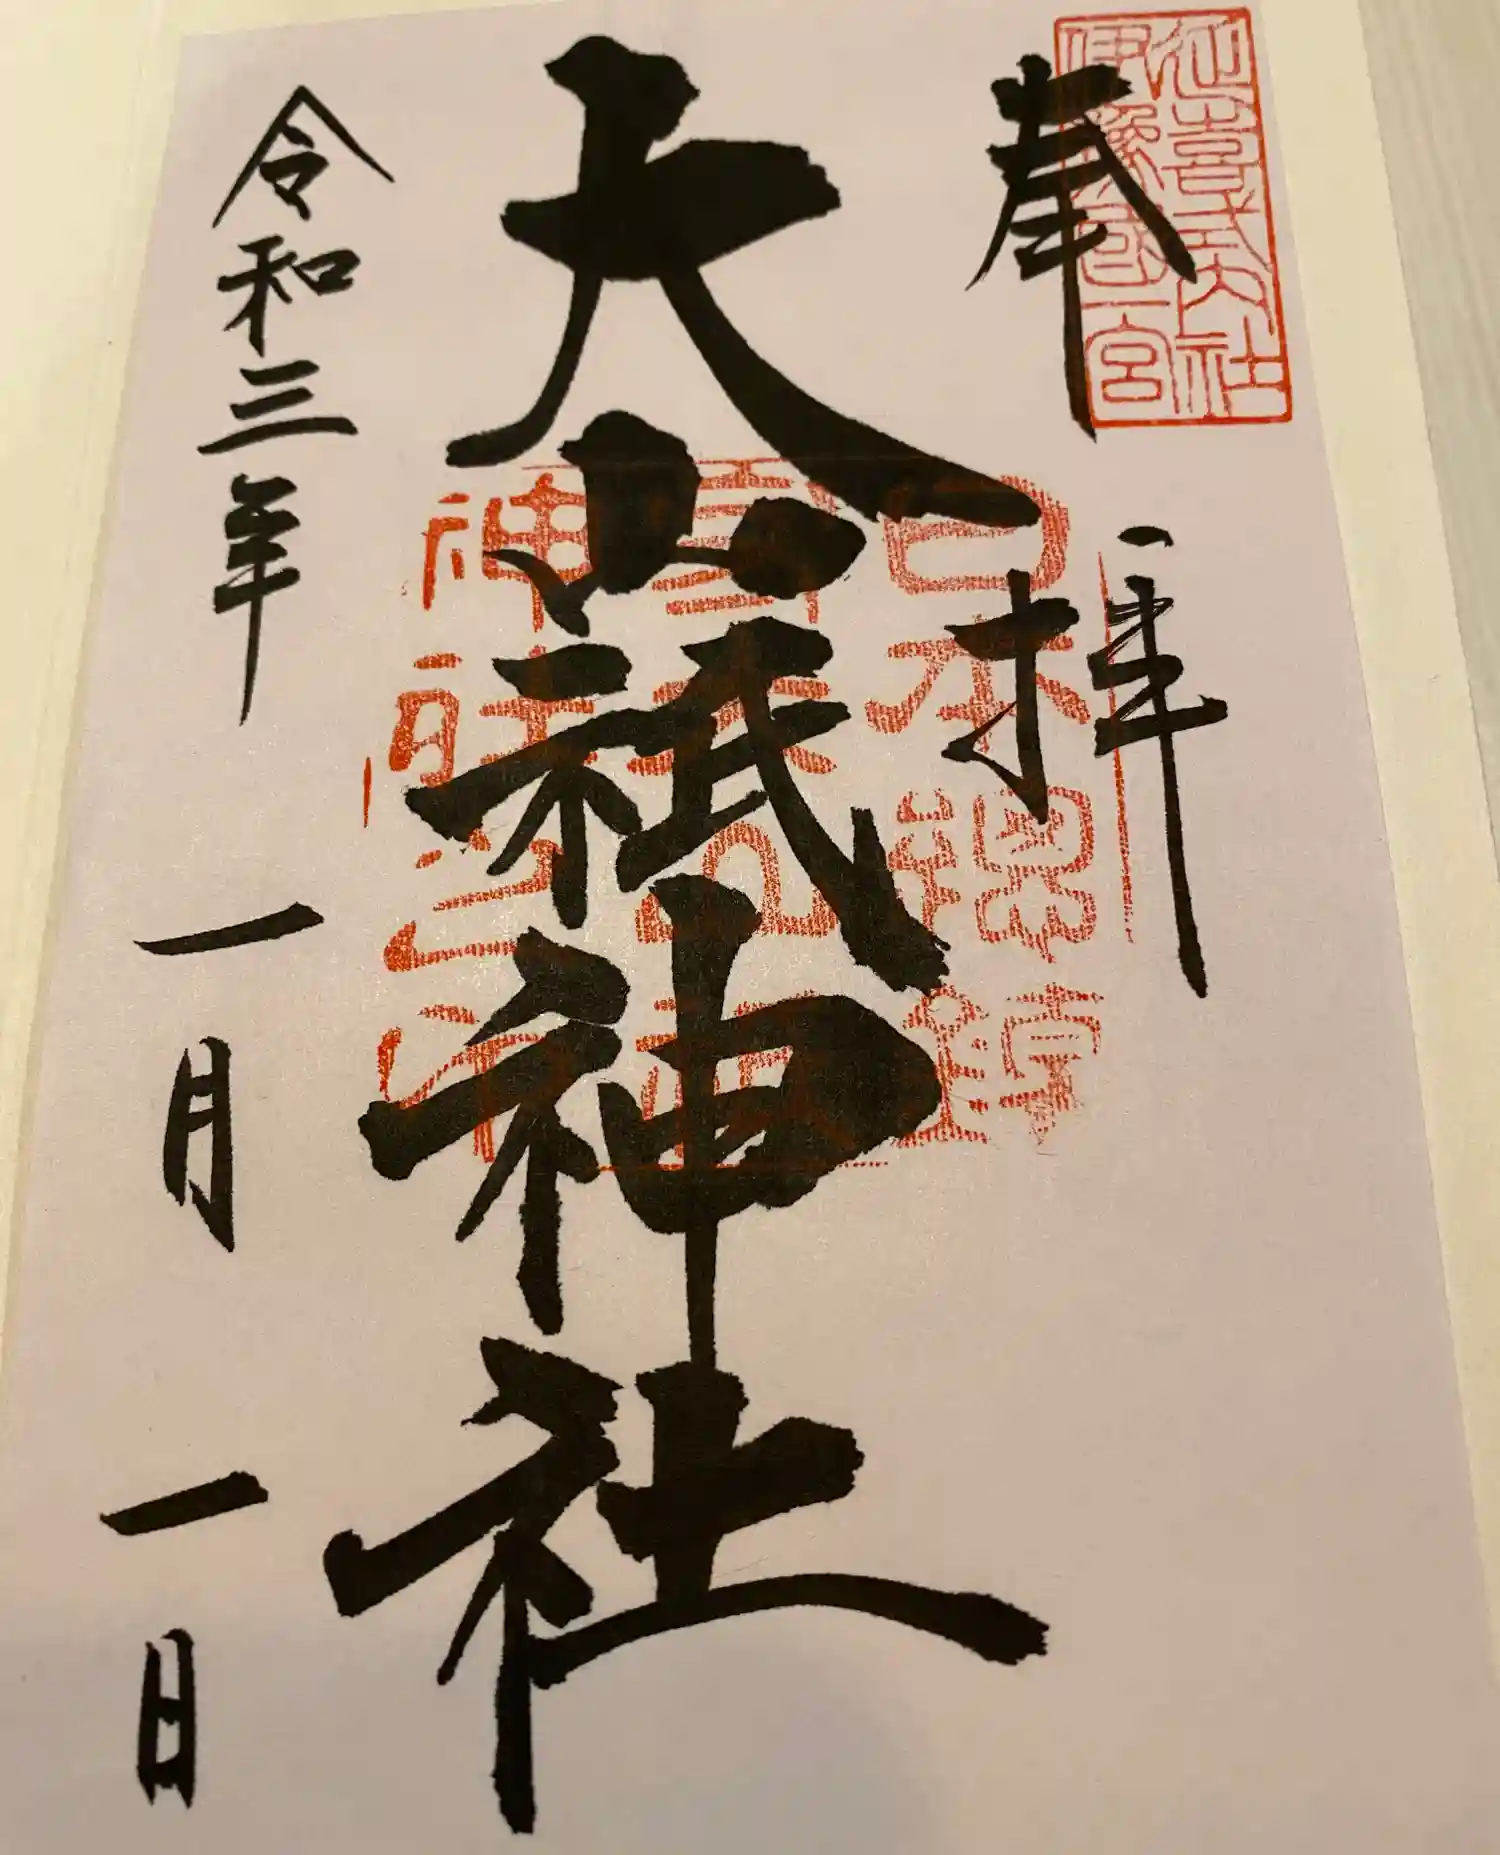 延喜式内社
伊豫国一宮
奉拝
日本總鎮守
大山祇神社
令和三年
一月
一日